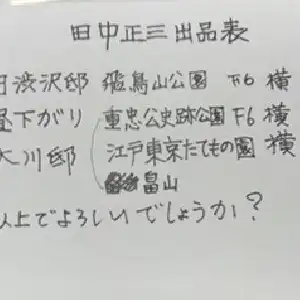 田中正三出品表
旧渋沢邸 飛鳥山公園 下6 横
昼下がり 重忠公史跡公園 下6 横
大川邸 江戸東京たてもの園 横
畠山
以上でよろしいでしょうか?